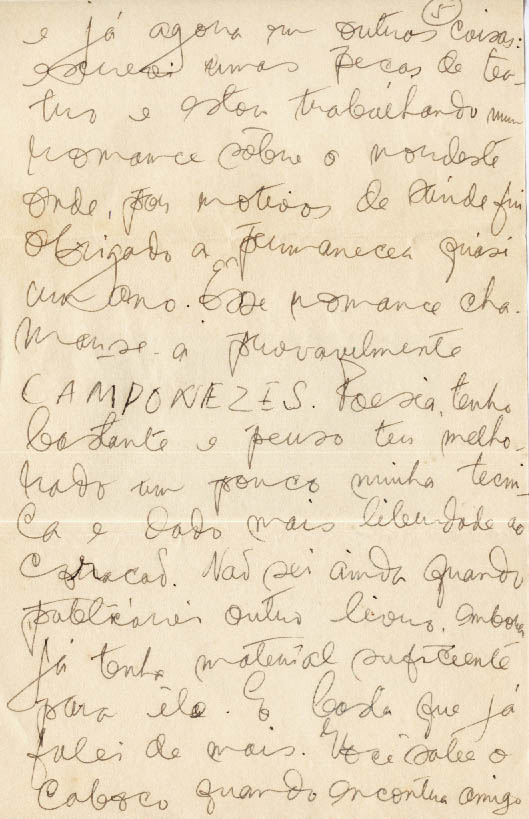 5
e já agora em outras coisas:
escrevi umas peças de tea-
tro e estou trabalhando num
romance sôbre o nordeste
onde, por motivos de saúde fui
obrigado a permanecer quasi
um ano. Êsse romance cha-
mar-se-a provavelmente
CAMPONEZES. Poesia, tenho
bastante e penso ter melho-
rado um pouco minha tecni-
ca e dado mais liberdade ao
coração. Não sei ainda quando
publicarei outro livro, embora
já tenha material suficiente
para êle. E basta que já
falei de mais. Você sabe o
caboco quando encontra amigo